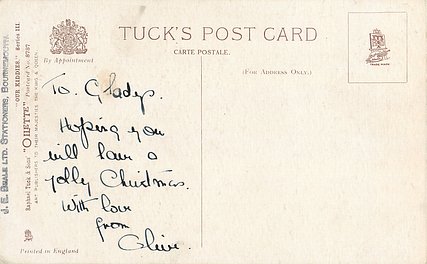 TUCK'S POST CARD
CARTE POSTALE.
(FOR ADDRESS ONLY.)
By Appointment
TRADE MARK
To. Gladys.
Hoping you
will have a
jolly Christmas.
With love
from
Olive.
Printed in England
Raphael Tuck & Sons' "OILETTE" Postcard No. 8767
ART PUBLISHERS TO THEIR MAJESTIES THE KING & QUEEN
"OUR KIDDIES." Series III
J. E. BEALE LTD. STATIONERS, BOURNEMOUTH.